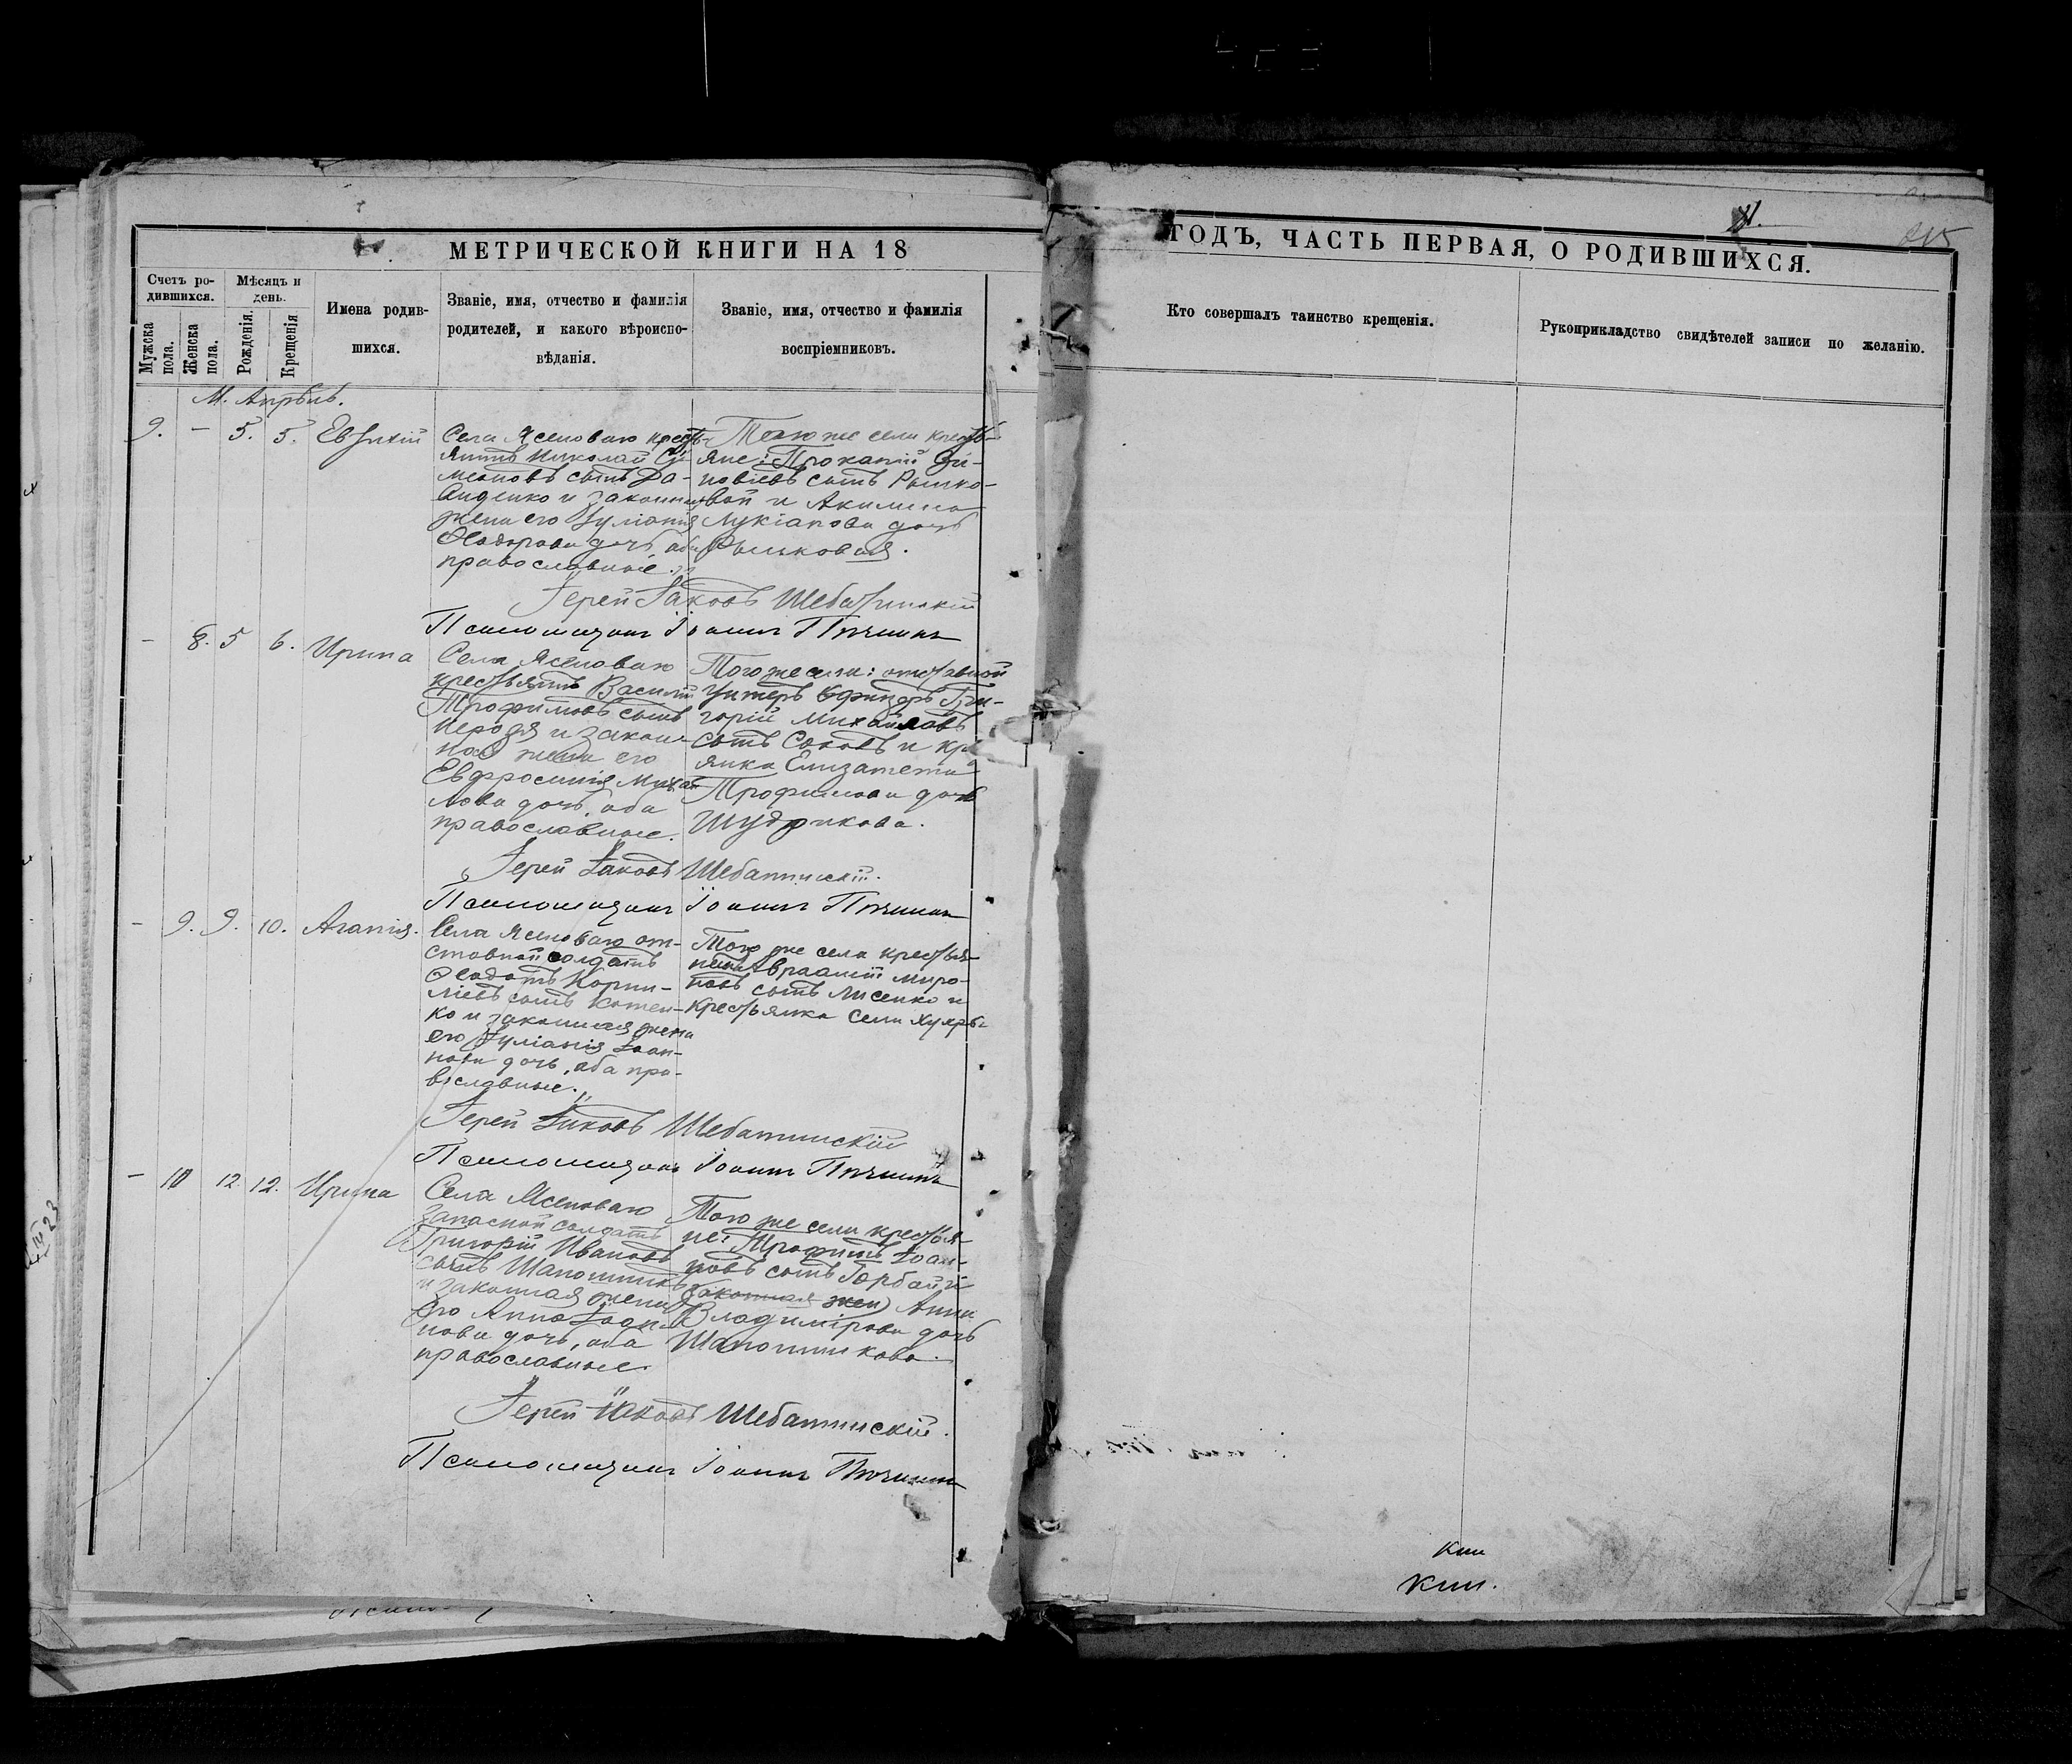 МЕТРИЧЕСКОЙ КНИГИ НА 18
ГОДЪ, ЧАСТЬ ПЕРВАЯ, О РОДИВШИХСЯ.
Счетъ ро-
дившихся.
Мужска
пола.
Женска
пола.
Мѣсяцъ и
день.
Рожденія.
Крещенія
Имена родив-
шихся.
Званіе, имя, отчество и фамилія
родителей, и какого вѣроиспо-
вѣданія.
Званіе, имя, отчество и фамилія
воспріемниковъ.
Кто совершалъ таинство крещенія.
Рукоприкладство свидѣтелей записи по желанію.
М. Апрѣль.
9. – 5. 5. Евтихій
Села Ясеноваго кресть-
янинъ Николай Си-
меоновъ сынъ
и законная
жена его Іуліанія
Ѳеодорова дочь, оба
православные.
Того же села кресть-
яне: Прокопій Зи-
новіевъ сынъ Рылько-
вой и Акилина
Лукіанова дочь
Рыльковая.
Іерей Іаковъ Шебатинскій
Псаломщикъ Іоаннъ
– 8. 5 6. Ирина
Села Ясеноваго
крестьянинъ Василій
Трофимовъ сынъ
и закон-
ная жена его
Евфросинія Михай-
лова дочь, оба
православные.
Того же села: отставной
унтеръ Офицеръ Гри-
горій Михайловъ
сынъ и кр
янка Елизавета
Трофимова дочь
Шудрикова.
Іерей Іаковъ Шебатинскій.
Псаломщикъ Іоаннъ
– 9. 9. 10. Агапія.
Села Ясеноваго от-
ставной солдатъ
Ѳеодотъ Корни-
ліевъ сынъ Котен-
ко и законная жена
его Іуліанія Іоан-
нова дочь, оба пра-
вославные.
Того же села крестья-
нинъ Авраамій Миро-
новъ сынъ Лисенко и
крестьянка села
Іерей Іаковъ Шебатинскій
Псаломщикъ Іоаннъ
– 10 12. 12. Ирина
Села Ясеноваго
запасной солдатъ
Григорій Ивановъ
сынъ Шапошникъ
и законная жена
его Анна Іоан-
нова дочь, оба
православные.
Того же села крестья-
не: Трофимъ Іоан-
новъ сынъ Горбань и
(законная жен) Анна
Владимірова дочь
Шапошникова.
Іерей Іаковъ Шебатинскій.
Псаломщикъ Іоаннъ